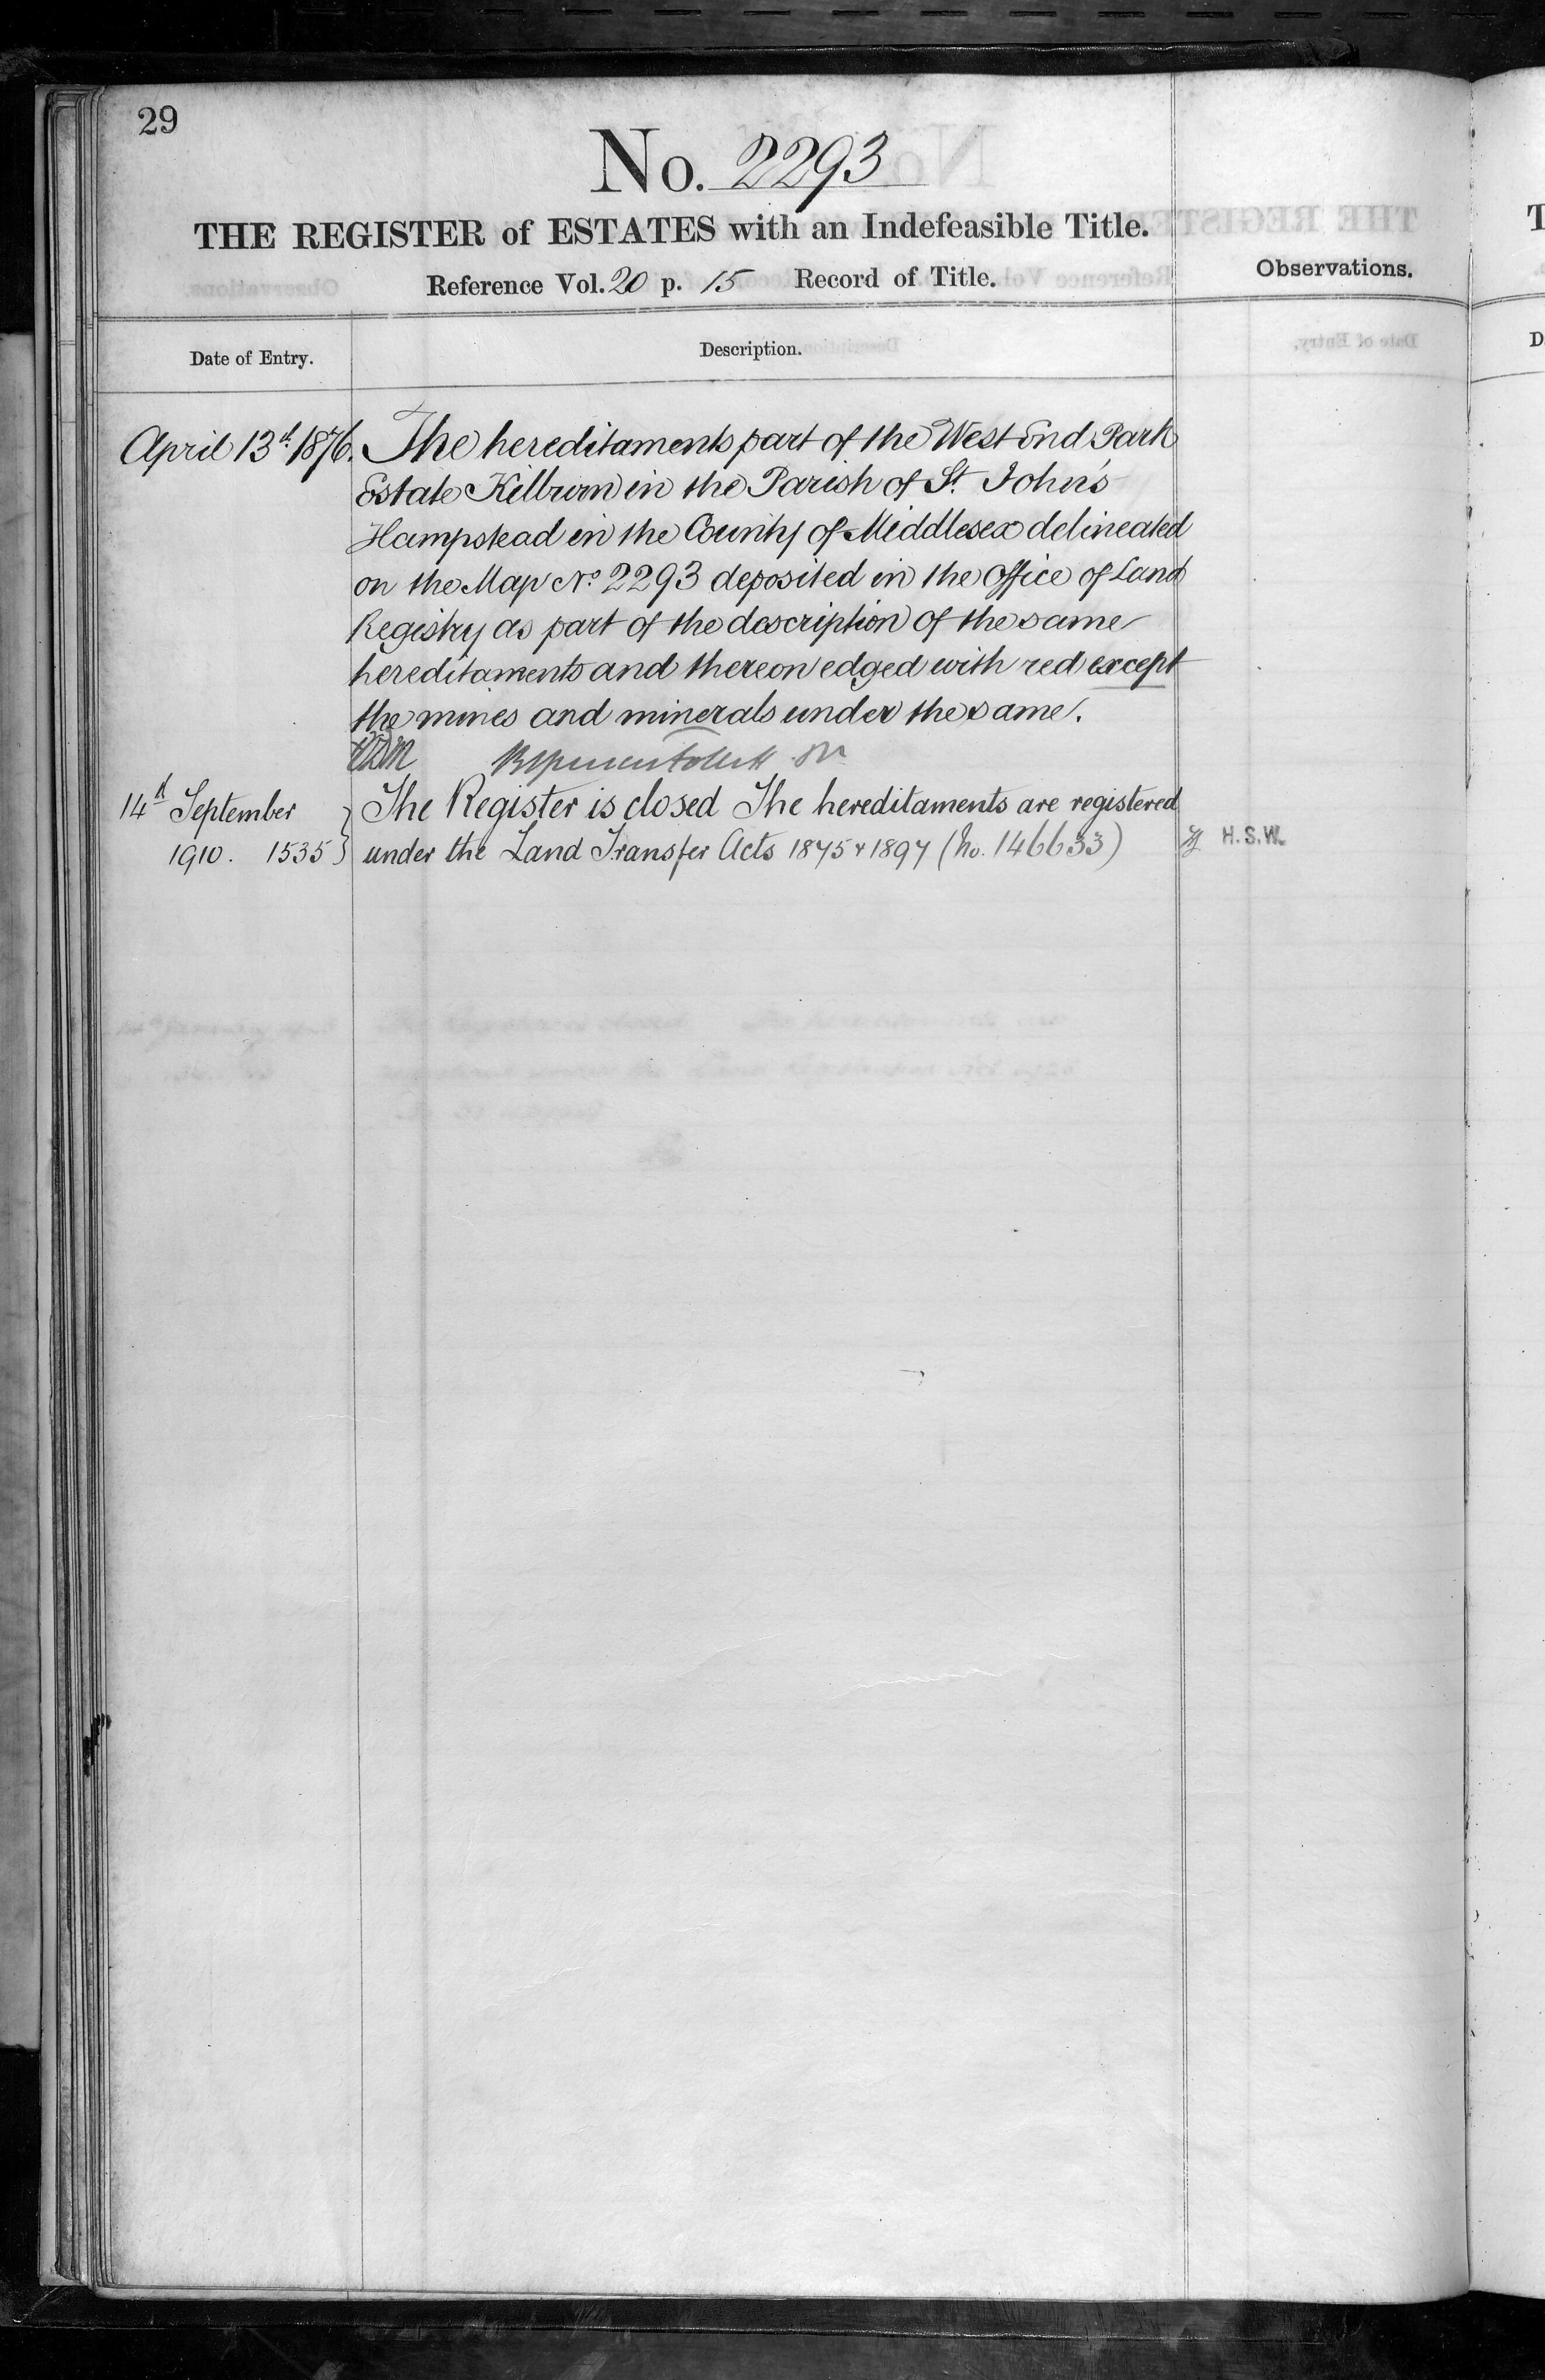 29
No. 2293
THE REGISTER of ESTATES with an Indefeasible Title.
Reference Vol. 20 p. 15 Record of Title.
Observations.
Date of Entry.
Description.
April 13th 1876. The hereditaments part of the West End Park
Estate Kilburn in the Parish of St. John's
Hampstead in the County of Middlesex delineated
on the Map No 2293 deposited in the Office of Land
Registry as part of the description of the same
hereditaments and thereon edged with red except
the mines and minerals under the same.
14th September The Register is closed The hereditaments are registered
1910. 1535 under the Land Transfer Acts 1875 & 1897 (No. 146633) H.S.W.